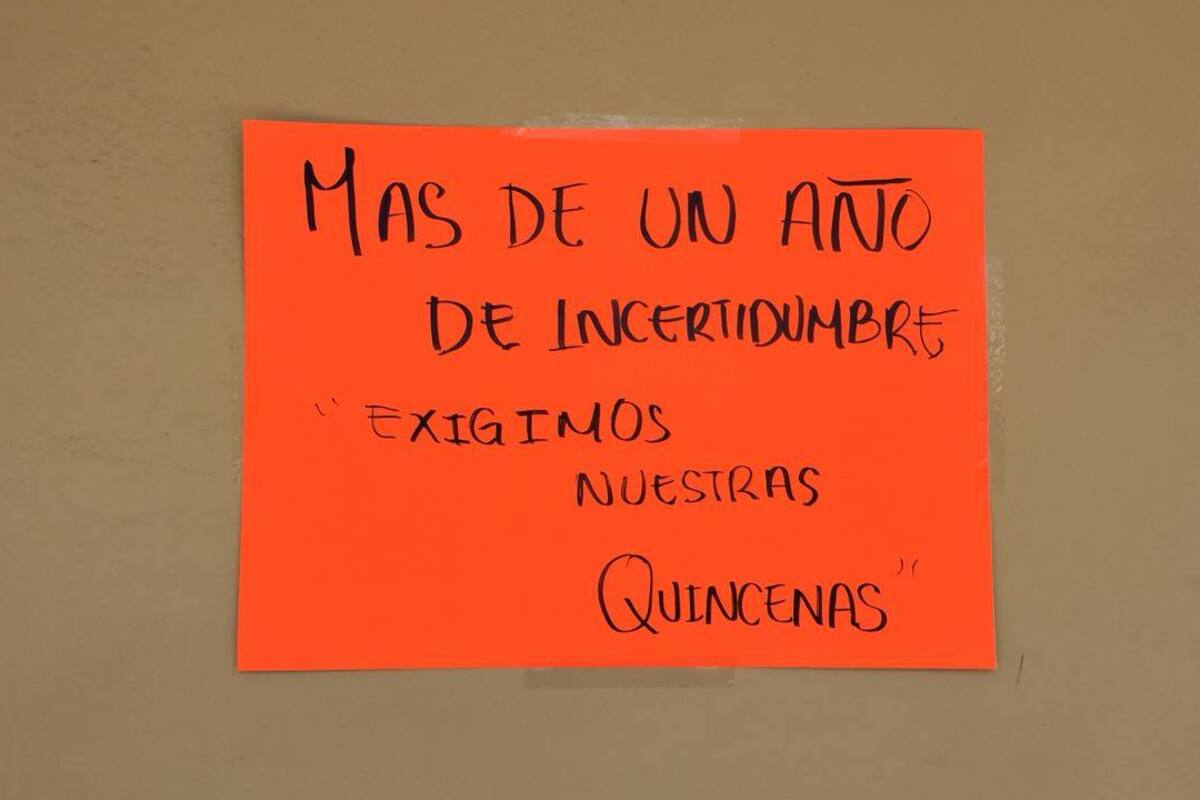 MAS DE UN AÑO
DE INCERTIDUMBRE
"EXIGIMOS
NUESTRAS
QUINCENAS"